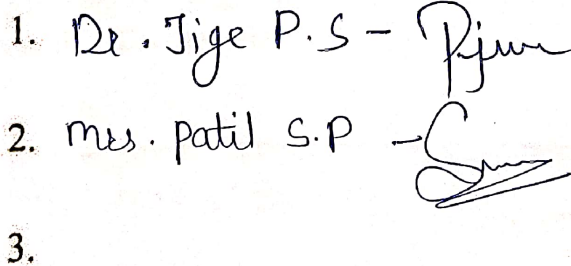 1. Dr. Jige P.S -
2. Mrs. Patil S.P -
3.